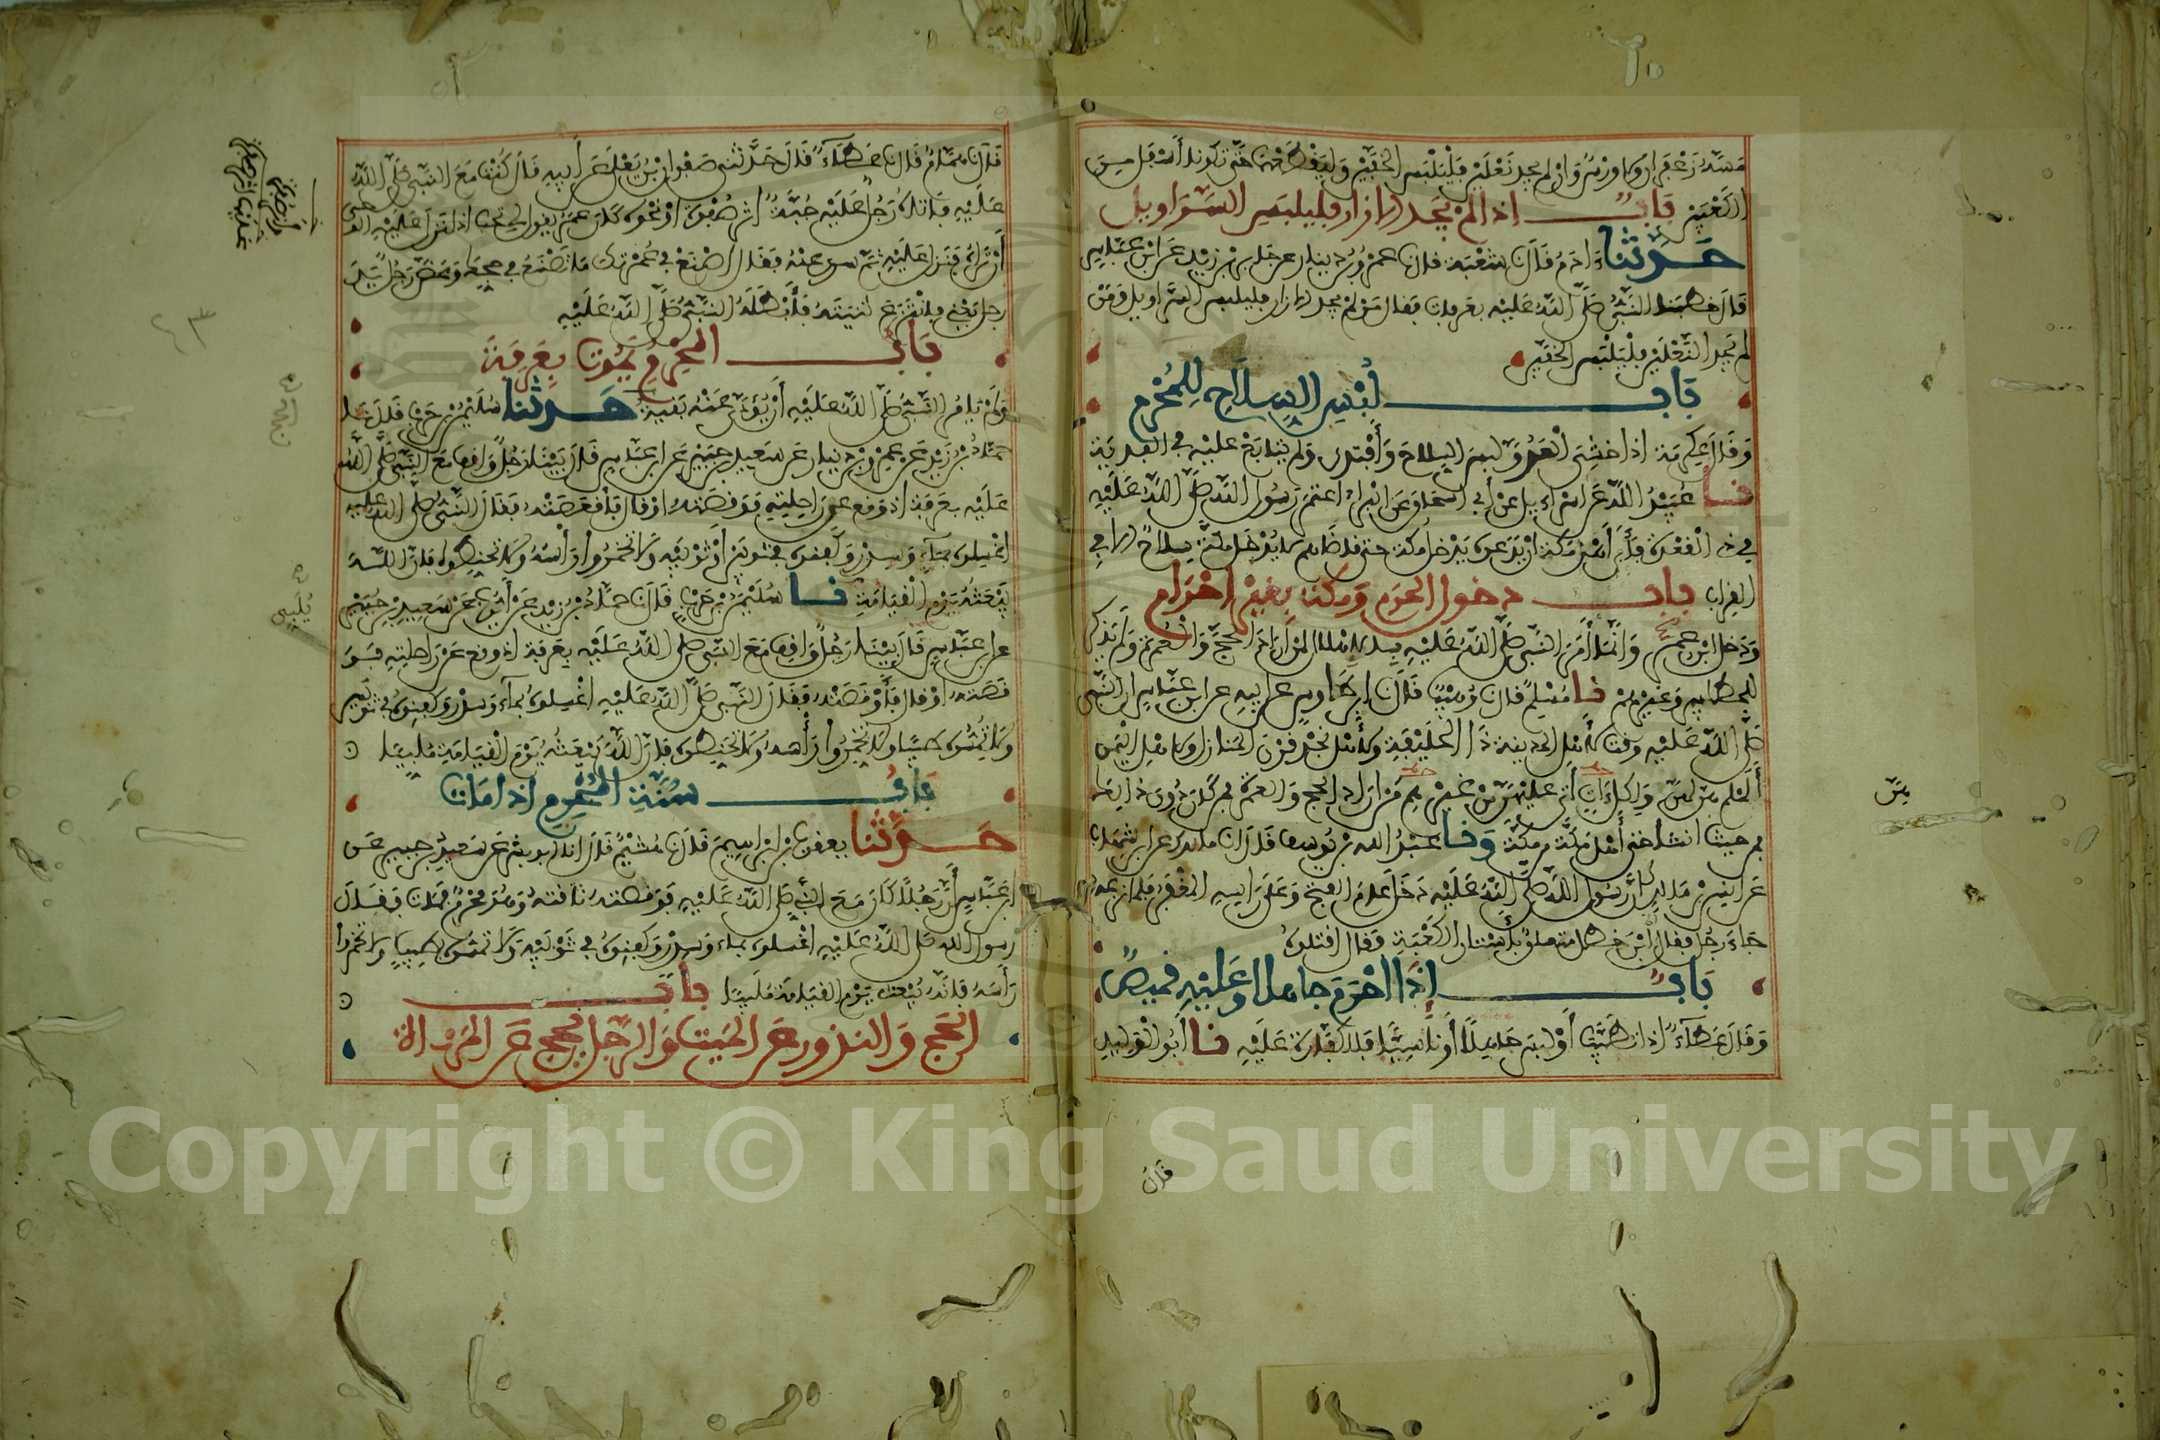 مَسَّهُ زَعْفَرَانٌ أو وَرْسٌ وَإن لم يجد نَعْلَيْنِ فَلْيَلْبَسِ الخُفَّيْنِ وَلْيَقْطَعْهُمَا حَتَّى يَكُونَا أَسْفَلَ مِنَ
الكَعْبَيْنِ بَابٌ إذا لَمْ يَجِدِ الإزار فليلبس السَّرَاويل
حَدَّثَنَا ءَادَمُ قَالَ نا شُعْبَةُ قال نا عَمْرُو بْنُ دينار عن جَابِرِ بْنِ زَيْدٍ عَنِ ابْنِ عَبَّاسٍ
قَالَ خَطَبَنَا النَّبِيُّ صَلَّى اللَّهُ عَلَيْهِ بعرفات فقال مَنْ لَمْ يجد الإزار فليلبس السَّرَاويل وَمَنْ
لم يَجِدِ النَّعْلَيْنِ فَلْيَلْبَسِ الخُفَّيْنِ
بَابُ لُبْسِ السِّلَاحِ لِلْمُحْرِمِ
وَقَالَ عِكْرِمَةُ إذا خَشِيَ الْعَدُوَّ لَبِسَ السِّلَاحَ وَافْتَدَى وَلَمْ يُتَابَعْ عليْهِ في الفِدْيَةِ
نا عُبَيْدُ اللَّهِ عَنْ إسْرَاءيل عَنْ أبي إسحاق عَنِ الْبَرَاء اعْتَمَرَ رَسُولُ اللَّهِ صَلَّى اللَّهُ عَلَيْهِ
في ذي الْقَعْدَةِ فَأَبَى أَهْلُ مَكَّةَ أَنْ يَدَعُوهُ يَدْخُلُ مَكَّةَ حتى قاضاهم لا يُدْخِلُ مَكَّةَ سِلَاحًا إلا في
القِرَاب بَابُ دخول الحرم وَمَكَّةَ بِغَيْرِ إحْرَام
وَدَخَلَ ابْنُ عُمَرَ وَإنَّمَا أَمَرَ النَّبِيُّ صَلَّى اللَّهُ عَلَيْهِ بالإهلال لِمَنْ أرَادَ الحَجَّ وَالْعُمْرَةَ وَلَمْ يَذْكُرْ
للحطابين وَغَيْرِهِمْ نا مُسْلِمٌ قال نا وُهَيْبٌ قَالَ نا ابن طاوس عن أبيهِ عن ابن عَبَّاسٍ أن النَّبِيَّ
صَلَّى اللَّهُ عَلَيْهِ وَقَّتَ لأَهْلِ المَدينة ذَا الحُلَيْفَةِ ولأَهْلِ نَجْدٍ قَرْنَ المَنازل ولأهل اليَمَنِ
أَلَمْلَمَ هُنَّ لَهُنَّ وَلِكُلِّ ءاتٍ أتى عليْهِنَّ مِنْ غَيْرِهِم مَنْ أرَادَ الحج وَالعمرة فمن كان دُونَ ذلِكَ
فمِنْ حيث أنشأ حتى أَهْلُ مَكَّةَ مِن مَكَّةَ وَنا عَبْدُ الله بن يُوسف قَالَ نا مَالِك عَنِ ابن شهاب
عَنْ أنس بْنِ مَالِكٍ أنَّ رَسُول اللَّهِ صَلَّى اللَّهُ عَلَيْهِ دَخَلَ عَامَ الفتح وَعَلَى رَأسه المِغْفَرُ فلما نزعه
جاءَ رَجُلٌ فقال ابْن خطل متعلق بأسْتَار الكَعْبَةِ فقال اقتلوهُ
بَابٌ إذَا احْرَمَ جاهلا وعَلَيْهِ قميصٌ
وَقَالَ عَطَاءٌ إذا تَطَيَّبَ أَوْ لَبِسَ جَاهِلًا أَوْ نَاسِيًا فَلَا كَفَّارَةَ عَلَيْهِ نا أَبُو الْوَليدِ
قَالَ
هُنَّ
قَالَ نا هَمَّامٌ قَالَ نا عَطَاءٌ قَالَ حَدَّثَنِي صَفْوَان بْنُ يَعْلَى عَنْ أبِيهِ قَالَ كُنْتُ مَعَ النَّبِيِّ صَلَّى اللَّهُ
عَلَيْهِ فأتاه رَجُلٌ عَلَيْهِ جُبَّةٌ أثر صُفْرَةٍ أوْ نحوه كان عمر يقول لي تحب إذا نزل عَلَيْهِ الوحي
أَنْ تَرَاهُ فنَزَلَ عَلَيْهِ ثُمَّ سري عَنْهُ فقَالَ اصْنَعْ في عُمْرَتِكَ مَا تَصْنَعُ في حجك وَعَضَّ رَجُلٌ يَدَ
رجل يعني فانْتَزَعَ ثَنِيَّتَهُ فَأَبْطَلَهُ النَّبِيُّ صَلَّى اللَّهُ عَلَيْهِ
بَابُ المُحْرِمِ يَمُوتُ بِعَرَفَةَ
وَلَمْ يَأمُرِ النَّبِيُّ صَلَّى اللَّهُ عَلَيْهِ أَنْ يُؤَدَّى عَنْهُ بَقِيَّةُ حَدَّثَنَا سُلَيْمَنُ بْنُ حَرْبٍ قَالَ نا
حَمَّادُ بْنُ زَيْدٍ عَنْ عَمْرِو بْنِ دينار عَنْ سَعيدِ بْنِ جُبَيْرٍ عَنِ ابن عَبَّاسٍ قَالَ بَيْنَا رَجُلٌ وَاقِفٌ مَعَ النَّبِيِّ صَلَّى اللَّهُ
عَلَيْهِ بعَرَفَةَ إذ وَقع عن رَاحِلَتِهِ فَوَقَصَتْهُ أوْ قال فَأَقْعَصَتْهُ فقَالَ النَّبِيُّ صَلَّى اللَّهُ عَلَيْهِ
اغْسِلُوهُ بمَاء وَسِدْرٍ وَكَفِّنُوهُ في ثَوْبَيْنِ أوْ ثَوْبَيْهِ وَلَا تُخَمِّرُوا رَأْسَهُ وَلَا تُحَنِّطُوهُ فإن اللَّهَ
يَبْعَثُهُ يَوْمَ الْقِيَامَةِ نا سُلَيْمَنُ بْنُ حَرْبٍ قَالَ نا حَمَّادُ بْنُ زَيْدٍ عَنْ أَيُّوبَ عَنْ سَعِيدِ بْنِ جُبَيْرٍ
عن ابن عَبَّاسٍ قَالَ بَيْنَا رَجُلٌ وَاقِف مَعَ النَّبِيِّ صَلَّى اللَّهُ عَلَيْهِ بِعَرَفَةَ إذ وقع عَنْ رَاحِلَتِهِ فَوَ
قَصَتهُ أوْ قال فَأَوْقَصَتْهُ فقَالَ النَّبِيُّ صَلَّى اللَّهُ عَلَيْهِ اغْسِلوهُ بمَآءٍ وَسِدْرٍ وَكَفِّنُوهُ في ثَوْبَيْنِ
وَلَا تُمِسُّوهُ طِيبًا ولَا تُخَمِّرُوا رَأْسَهُ وَلَا تُحَنِّطُوهُ فإنَّ اللَّهَ يَبْعَثُهُ يَوْمَ القِيَامَةِ مُلَبِّيًا
بَابُ سُنَّةِ المُحْرِمِ إذَا مَاتَ
حَدَّثَنَا يعقوب بن إبْرَاهِيمَ قَالَ نا هُشَيْمٌ قَالَ أنا أبو بِشْر عَنْ سَعِيدِ بْنِ جبير عَنِ
ابْنِ عَبَّاسٍ أَنَّ رَجُلًا كَانَ مَعَ النَّبِيِّ صَلَّى اللَّهُ عَلَيْهِ فوَقصته نَاقَتهُ وَهُوَ مُحْرِمٌ فمَاتَ فَقَالَ
رسول الله صَلَّى اللَّهُ عَلَيْهِ اغْسِلوه بماء وَسِدْرٍ وَكَفِّنُوهُ في ثَوْبَيْهِ وَلَا تمسُّوهُ بطِيبٍ ولَا تخمروا
رَأْسَهُ فإنَّهُ يُبْعَثُ يَوْمَ القِيَامَةِ مُلَبِّيًا بَابُ
الحَجِّ وَالنذور عن المَيِّتِ وَالرَّجُل يَحُجُّ عَنِ المَرْأة
يُلَبِّي
Copyright © King Saud University